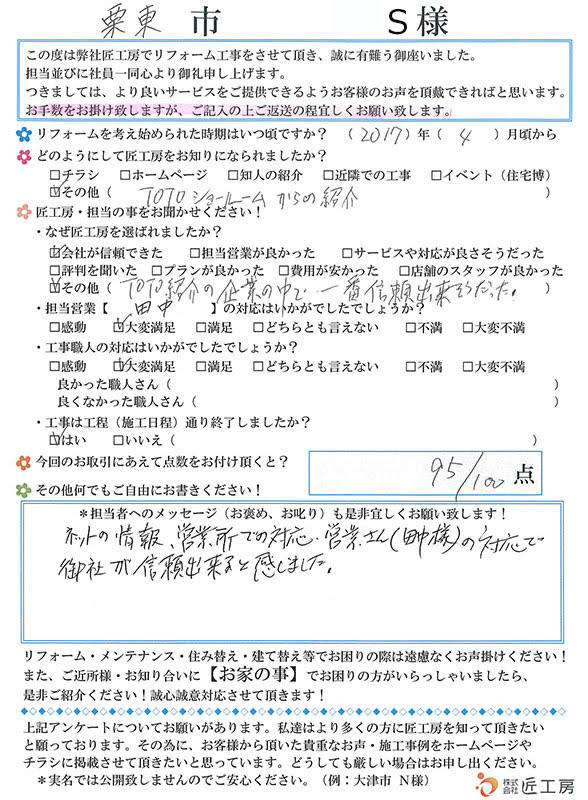 栗東 市 S様
この度は弊社匠工房でリフォーム工事をさせて頂き、誠に有難う御座いました。
担当並びに社員一同心より御礼申し上げます。
つきましては、より良いサービスをご提供できるようお客様のお声を頂戴できればと思います。
お手数をお掛け致しますが、ご記入の上ご返送の程宜しくお願い致します。
リフォームを考え始められた時期はいつ頃ですか？ (2017)年(4)月頃から
どのようにして匠工房をお知りになられましたか？
□チラシ □ホームページ □知人の紹介 □近隣での工事 □イベント（住宅博）
☑その他（TOTOショールームからの紹介 ）
匠工房・担当の事をお聞かせください！
・なぜ匠工房を選ばれましたか？
☑会社が信頼できた □担当営業が良かった □サービスや対応が良さそうだった
□評判を聞いた □プランが良かった □費用が安かった □店舗のスタッフが良かった
☑その他（TOTO紹介の企業の中で一番信頼出来そうだった。
・担当営業【 田中 】の対応はいかがでしたでしょうか？
□感動 ☑大変満足 □満足 □どちらとも言えない □不満 □大変不満
・工事職人の対応はいかがでしたでしょうか？
□感動 ☑大変満足 □満足 □どちらとも言えない □不満 □大変不満
良かった職人さん（ ）
良くなかった職人さん（ ）
・工事は工程（施工日程）通り終了しましたか？
☑はい □いいえ（ ）
今回のお取引にあえて点数をお付け頂くと？ 95/100 点
その他何でもご自由にお書きください！
＊担当者へのメッセージ（お褒め、お叱り）も是非宜しくお願い致します！
ネットの情報、営業所での対応、営業さん(田中様)の対応で
御社が信頼出来ると感じました。
リフォーム・メンテナンス・住み替え・建て替え等でお困りの際は遠慮なくお声掛けください！
また、ご近所様・お知り合いに【お家の事】でお困りの方がいらっしゃいましたら、
是非ご紹介ください！誠心誠意対応させて頂きます！
上記アンケートについてお願いがあります。私達はより多くの方に匠工房を知って頂きたい
と願っております。その為に、お客様から頂いた貴重なお声・施工事例をホームページや
チラシに掲載させて頂きたいと思っています。どうしても厳しい場合はお申し出ください。
＊実名では公開致しませんのでご安心ください。（例：大津市 N様）
株式会社 匠工房